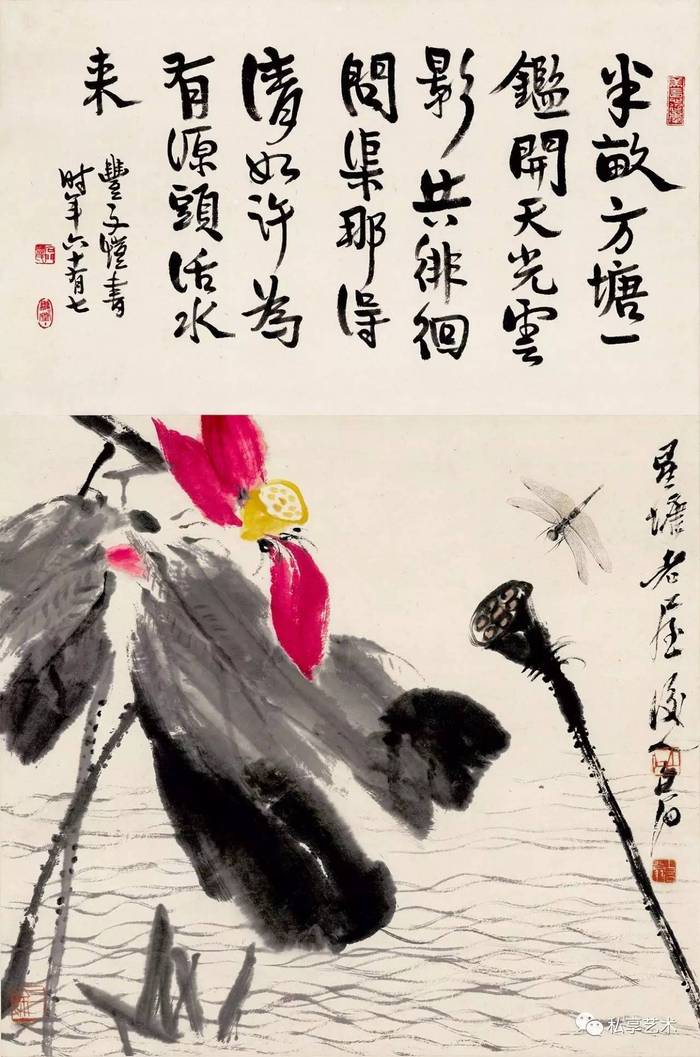 半畝方塘一
鑑開天光雲
影共徘徊
問渠那得
清如许為
有源頭活水
来
豐子愷書
时年六十有七
星塘老屋後人白石
私享艺术